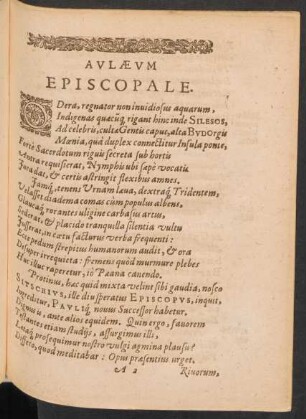 AVLÆVM
EPISCOPALE.
ODera, regnator non invidiosus aquarum,
Indigenas quacũq́ rigant hinc inde SILESOS,
Ad celebris, cultæ Gentis caput, alta BVDORGIS
Mœnia, quà duplex connectitur Insula ponte,
Fortè Sacerdotum riguis secreta sub hortis
Antra requisierat, Nymphis ubi sæpè vocatis
Jura dat, & certis astringit flexibus amnes.
Jamq́, tenens Urnam læva, dextraq́ Tridentem,
Velasset diadema comas cùm populus albens,
Glaucaq́ rorantes uligine carbasus artus,
Sederat, & placido tranquilla silentia vultu
Jusserat, in cœtu facturus verba frequenti:
Ecce pedum strepitus humanorum audit, & ora
Desuper irrequieta: fremens quòd murmure plebes
Hac illuc raperetur, iô Pæana canendo.
Protinus, hac quid mixta velint sibi gaudia, nosco
SITSCHIVS, ille diu speratus EPISCOPVS, inquit,
Proditur, PAVLIq́, novus Successor habetur.
novi, ante alios equidem. Quin ergo, favorem
Testantes etiam studijs, assurgimus illi,
Lataq́ prosequimur nostro vulgi agmina plausu?
Differo, quod meditabar: Opus præsentius urget.
A 2 Rivorum,